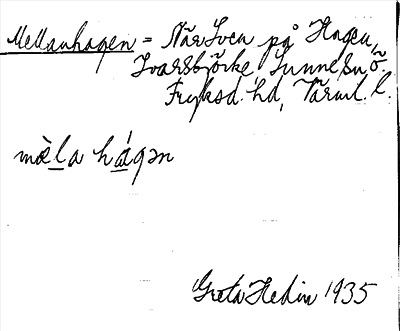 Mellanhagen = När Sven på Hagen,
Ivarsbjörke Sunne sn ö.
Fryksd. hd, Värml. l.
mèla hágən
Greta Hedin 1935